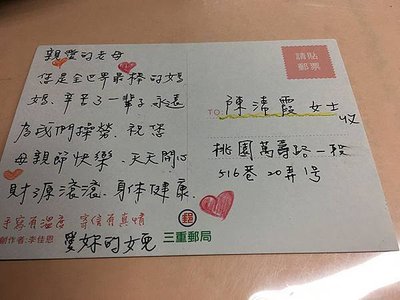 親愛的老母
您是全世界最棒的媽
媽、辛苦了一輩子永遠
為我們操勞、祝您
母親節快樂、天天開心
財源滾滾、身体健康
手寫有溫度 寄信有真情
創作者:李佳恩
愛妳的女兒
請貼
郵票
TO:
陳清霞 女士
收
桃園萬壽路一段
516巷20弄1号
郵
三重郵局